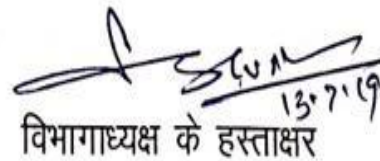 13.7.19
विभागाध्यक्ष के हस्ताक्षर